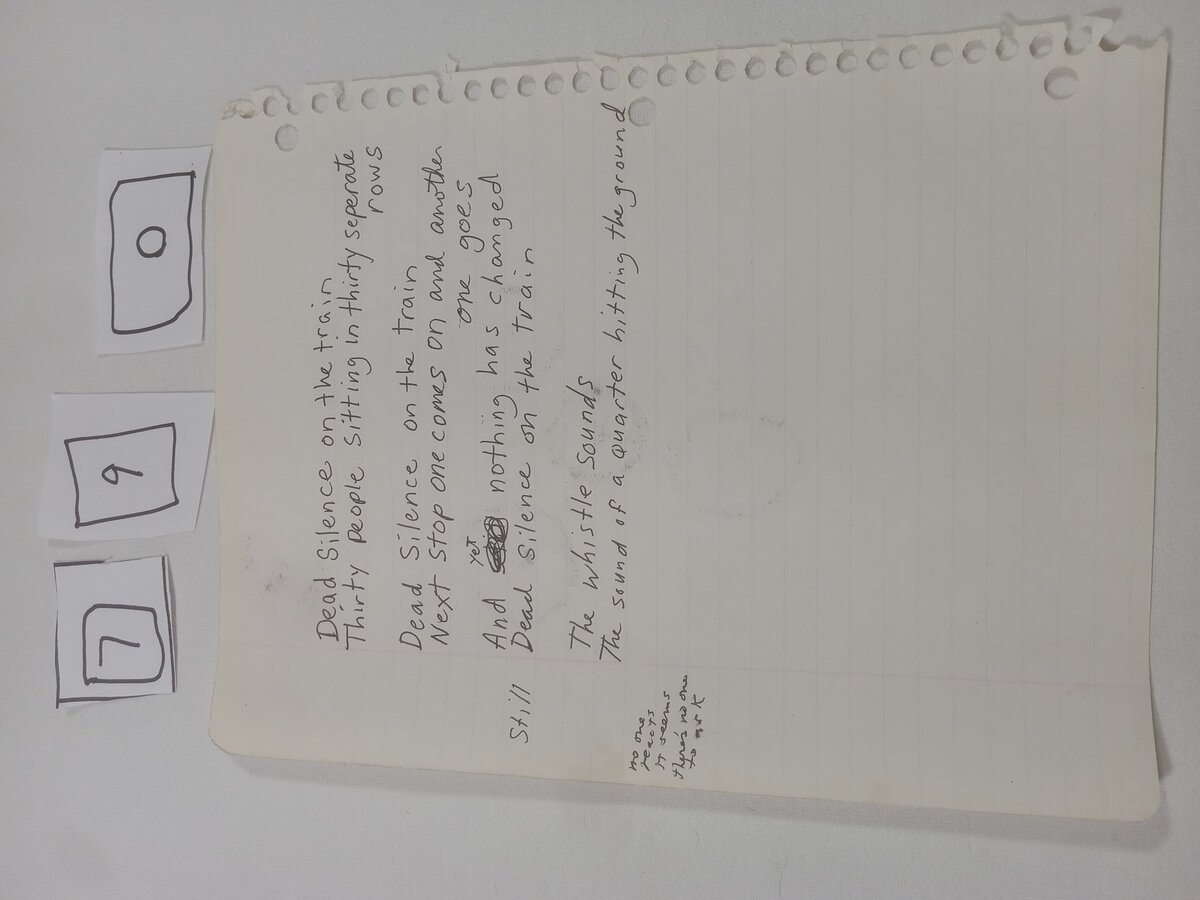 7 9 0
Dead Silence on the train
Thirty people Sitting in thirty seperate
rows
Dead Silence on the train
Next Stop one comes on and another
one goes
And yet nothing has changed
Still Dead Silence on the train
The whistle Sounds
The sound of a quarter hitting the ground
no one
reacts
it seems
there's no one
to ask